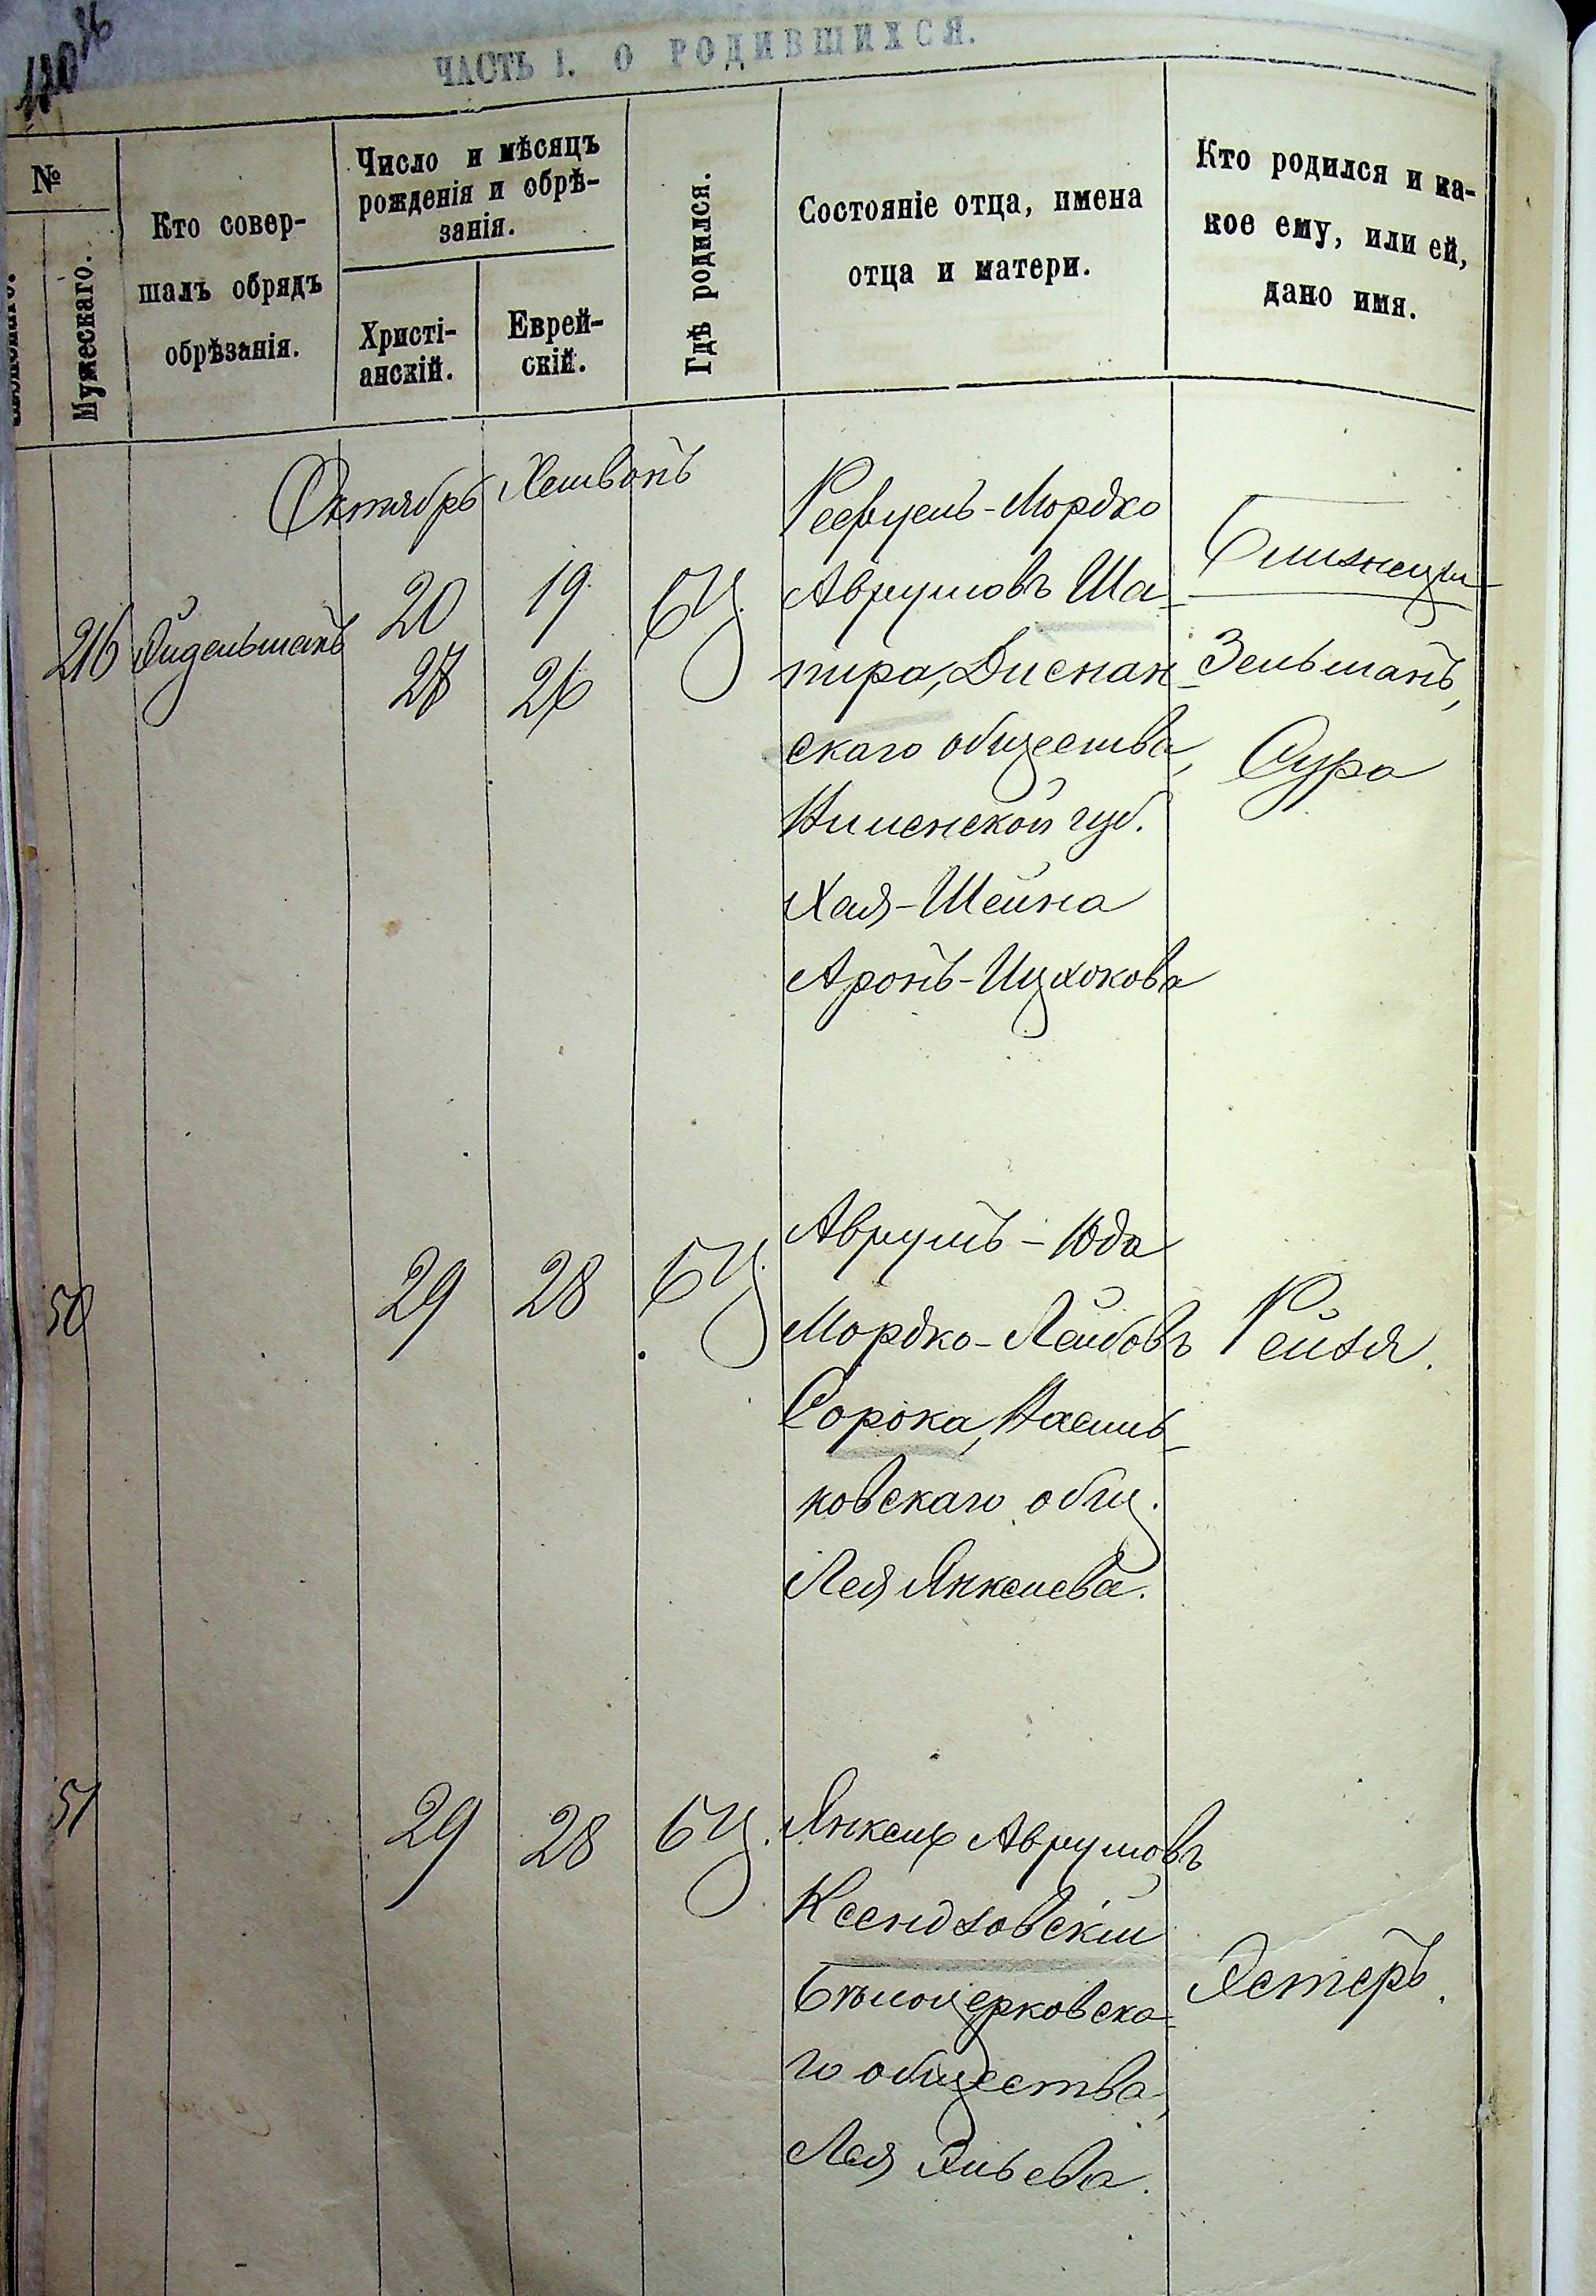 ЧАСТЬ I. О РОДИВШИХСЯ.
№
Мужескаго.
Кто совер-
шалъ обрядъ
обрѣзанія.
Число и мѣсяцъ
рожденія и обрѣ-
занія.
Христі-
анскій.
Еврей-
скій.
Гдѣ родился.
Состояніе отца, имена
отца и матери.
Кто родился и ка-
кое ему, или ей,
дано имя.
Октябрь Хешвонъ
216
20 19
27 26
БЦ.
Мордко
Аврумовъ Ша-
пира, Диснан-
скаго общества,
Виленской губ.
Хая-Шейна
Аронъ-Ицхокова
Близнецы
Зельманъ,
Сура
50
29 28 БЦ.
Аврумъ-Юда
Мордко-Лейбовъ
Сорока, Василь-
ковскаго общ.
Лея Янкелева.
Рейзя.
51
29 28 БЦ.
Янкель Аврумовъ
Ксендзовскій
Бѣлоцерковска-
го общества,
Лея Эльева.
Эстеръ.